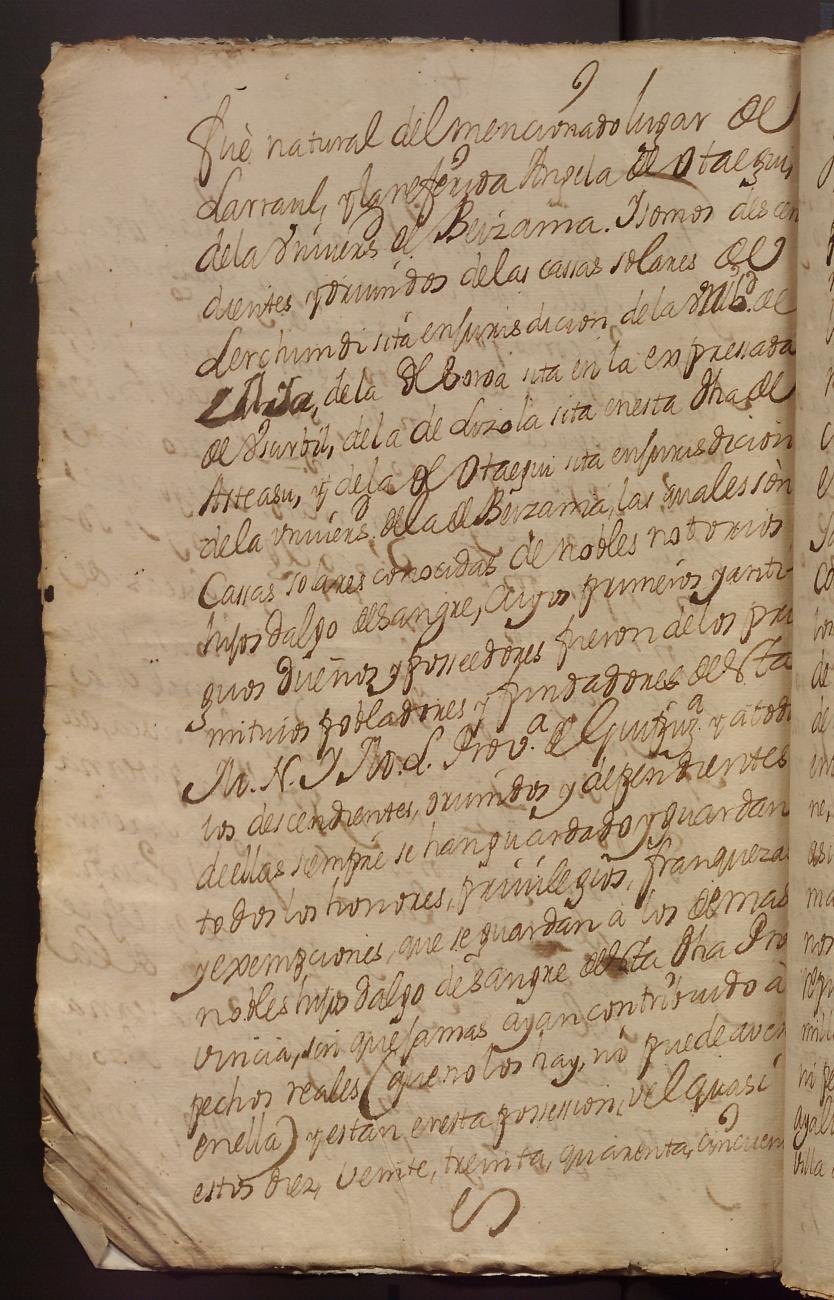 fuè natural del mencionado lugar de
Larraul, y la referida Angela de Otaegui,
dela Vniversd. de Beizama. Y somos descen
dientes y oriundos delas cassas solares de
Lerchundi sita en jurisdicion dela
dela de Soroa sita en la expressada
de Vsarbil, dela de Lizola sita en esta dha de
Asteasu, y dela de Otaegui sita en jurisdicion
dela vniversd. dela de Beizama, las quales sòn
Cassas solares conocidas de nobles notorios
hijos dalgo de sangre, cuyos primeros y anti-
guos dueños y posseedores fueron delos pri
mitiuos pobladores y fundadores de esta
M. N. Y M. L. Prov.a de Guipuz.a y a todos
los descendientes, oriundos y dependientes
deellas siempre se han guardado y guardan
todos los honores, priuilegios, franquezas
y exempciones, que se guardan à los demas
nobles hijos dalgo de sangre de esta dha Pro
uincia, sin que jamas ayan contribuido à
pechos reales (que no los hay, ni puede aver
enella) y estàn en esta possession, vel quasi
estos diez, veinte, treinta, quarenta, cinquen